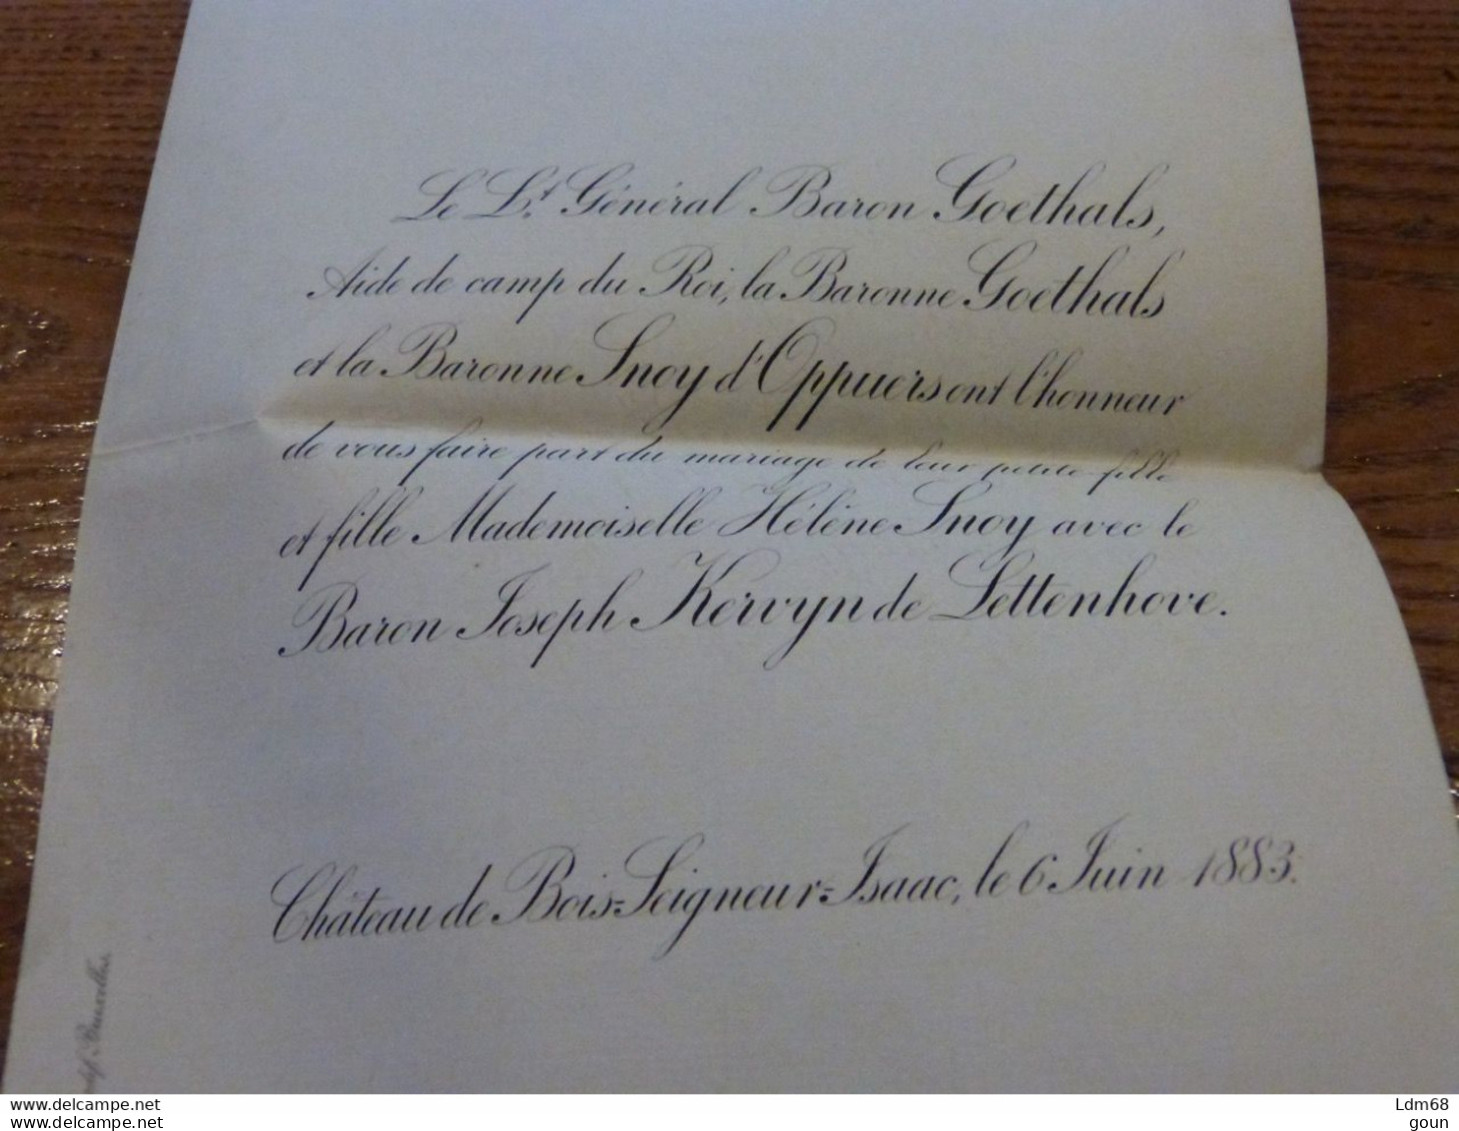 Le Lt. Général Baron Goethals,
Aide de camp du Roi, la Baronne Goethals
et la Baronne Snoy d'Oppuers ont l'honneur
de vous faire part du mariage de leur petite fille
et fille Mademoiselle Hélène Snoy avec le
Baron Joseph Kervyn de Lettenhove.
Château de Bois-Seigneur-Isaac, le 6 Juin 1883.
Bruxelles.
www.delcampe.net
www.delcampe.net
Ldm68
goun